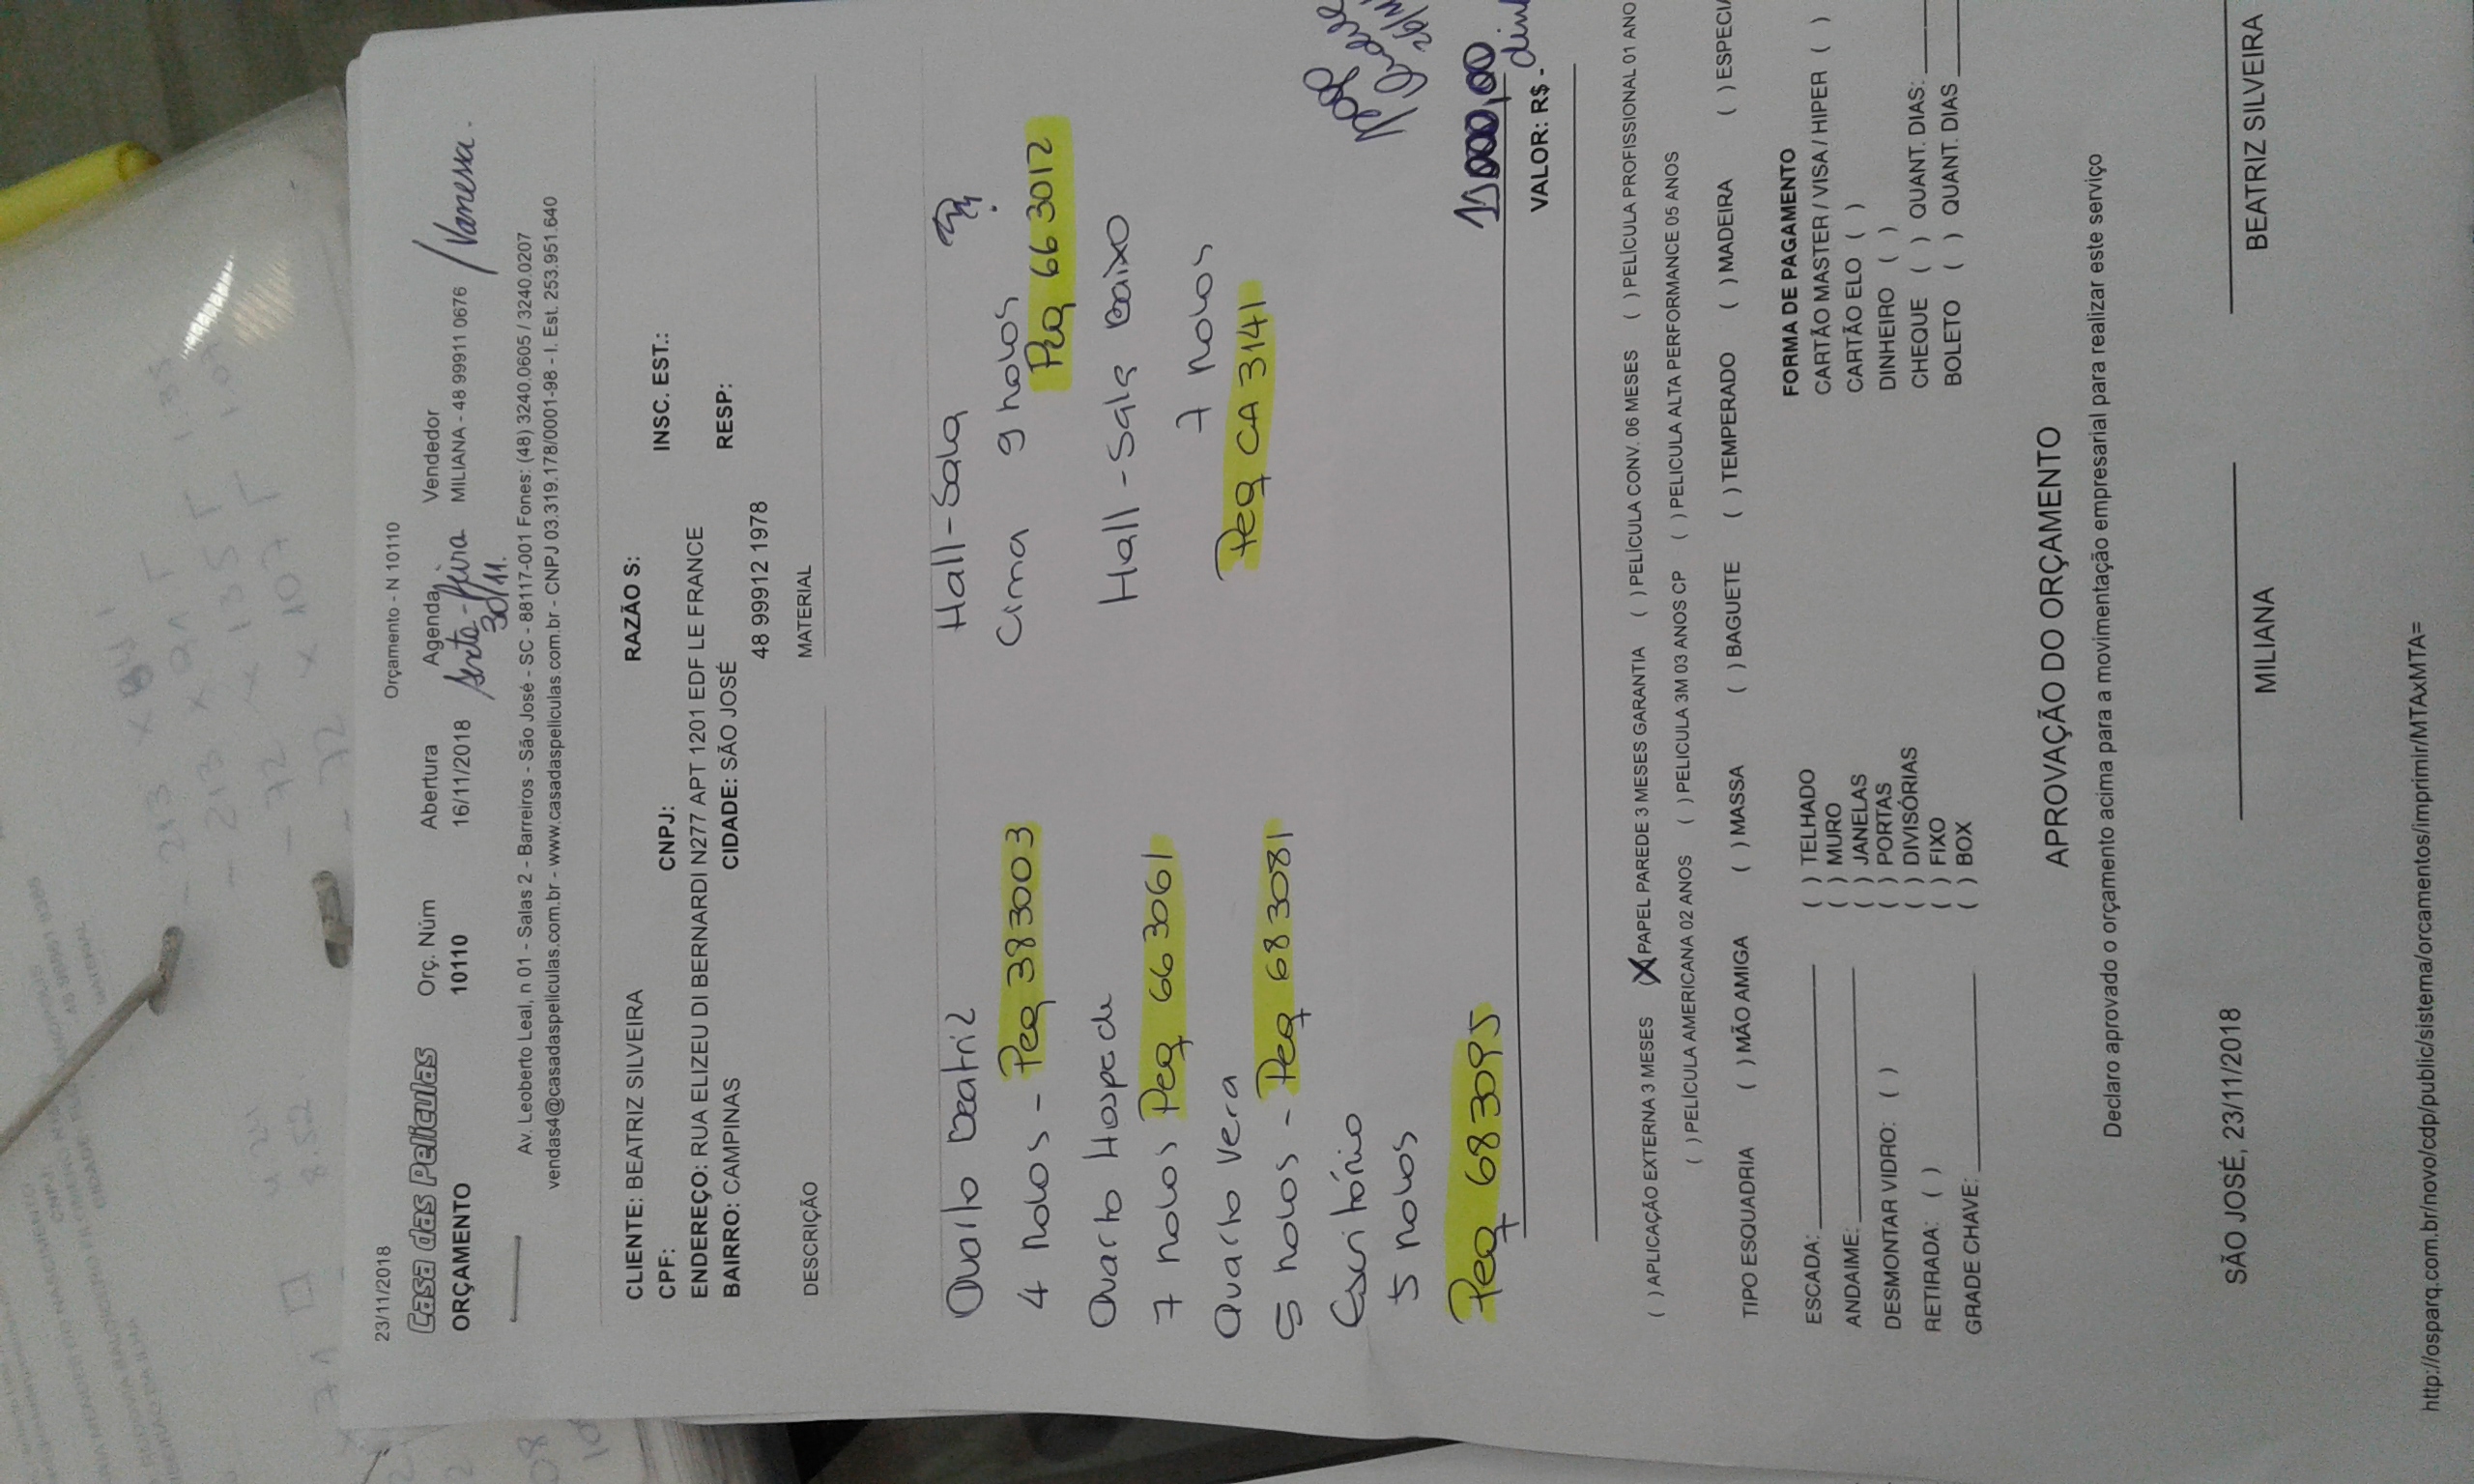 23/11/2018 Orçamento - N 10110
Casa das Películas Orç. Núm Abertura Agenda Vendedor
ORÇAMENTO 10110 16/11/2018 sexta-feira MILIANA - 48 99911 0676 / Vanessa.
30/11.
Av. Leoberto Leal, n 01 - Salas 2 - Barreiros - São José - SC - 88117-001 Fones: (48) 3240.0605 / 3240.0207
vendas4@casadaspeliculas.com.br - www.casadaspeliculas.com.br - CNPJ 03.319.178/0001-98 - I. Est. 253.951.640
CLIENTE: BEATRIZ SILVEIRA RAZÃO S:
CPF: CNPJ: INSC. EST.:
ENDEREÇO: RUA ELIZEU DI BERNARDI N277 APT 1201 EDF LE FRANCE
BAIRRO: CAMPINAS CIDADE: SÃO JOSÉ RESP:
48 99912 1978
DESCRIÇÃO MATERIAL
Quarto Beatriz Hall-Sala
4 rolos - Peq 383003 Cima 9 rolos
Peq 66 3012
Quarto Hospede Hall - Sala Baixo
7 rolos Peq 66 3061 7 rolos
Quarto Vera Peq CA 3141
5 rolos - Peq 68 3081
Escritório
5 rolos
Peq 68 3095
VALOR: R$
( ) APLICAÇÃO EXTERNA 3 MESES (X) PAPEL PAREDE 3 MESES GARANTIA ( ) PELÍCULA CONV. 06 MESES ( ) PELÍCULA PROFISSIONAL 01 ANO
( ) PELÍCULA AMERICANA 02 ANOS ( ) PELICULA 3M 03 ANOS CP ( ) PELICULA ALTA PERFORMANCE 05 ANOS
TIPO ESQUADRIA ( ) MÃO AMIGA ( ) MASSA ( ) BAGUETE ( ) TEMPERADO ( ) MADEIRA ( ) ESPECIA
ESCADA: ( ) TELHADO FORMA DE PAGAMENTO
( ) MURO CARTÃO MASTER / VISA / HIPER ( )
ANDAIME: ( ) JANELAS CARTÃO ELO ( )
DESMONTAR VIDRO: ( ) ( ) PORTAS DINHEIRO ( )
( ) DIVISÓRIAS CHEQUE ( ) QUANT. DIAS:
RETIRADA: ( ) ( ) FIXO BOLETO ( ) QUANT. DIAS
GRADE CHAVE: ( ) BOX
APROVAÇÃO DO ORÇAMENTO
Declaro aprovado o orçamento acima para a movimentação empresarial para realizar este serviço
SÃO JOSÉ, 23/11/2018 MILIANA BEATRIZ SILVEIRA
http://osparq.com.br/novo/cdp/public/sistema/orcamentos/imprimir/MTAxMTA=